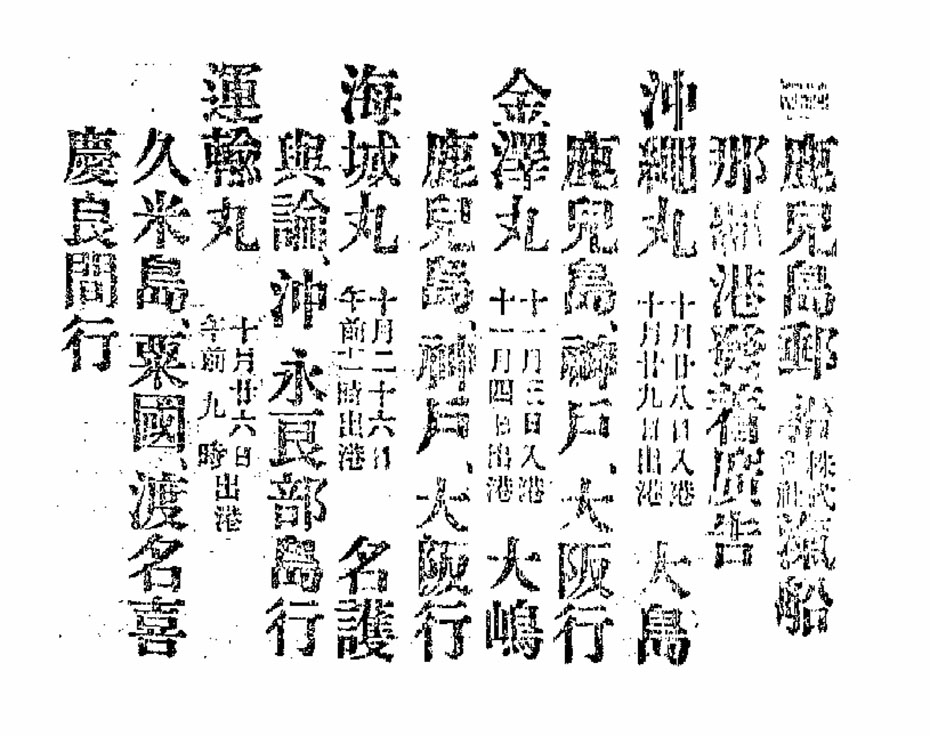 鹿兒島郵船株式會社滊船
那覇港發着廣告
沖繩丸 十月廿八日入港 十月廿九日出港 大島
鹿兒島、神戸、大阪行
金澤丸 十一月三日入港 十一月四日出港 大嶋
鹿兒島、神戸、大阪行
海城丸 十月二十六日 午前十時出港 名護
與論、沖永良部島行
運輸丸 十月廿六日 午前九時出港
久米島、粟國、渡名喜
慶良間行